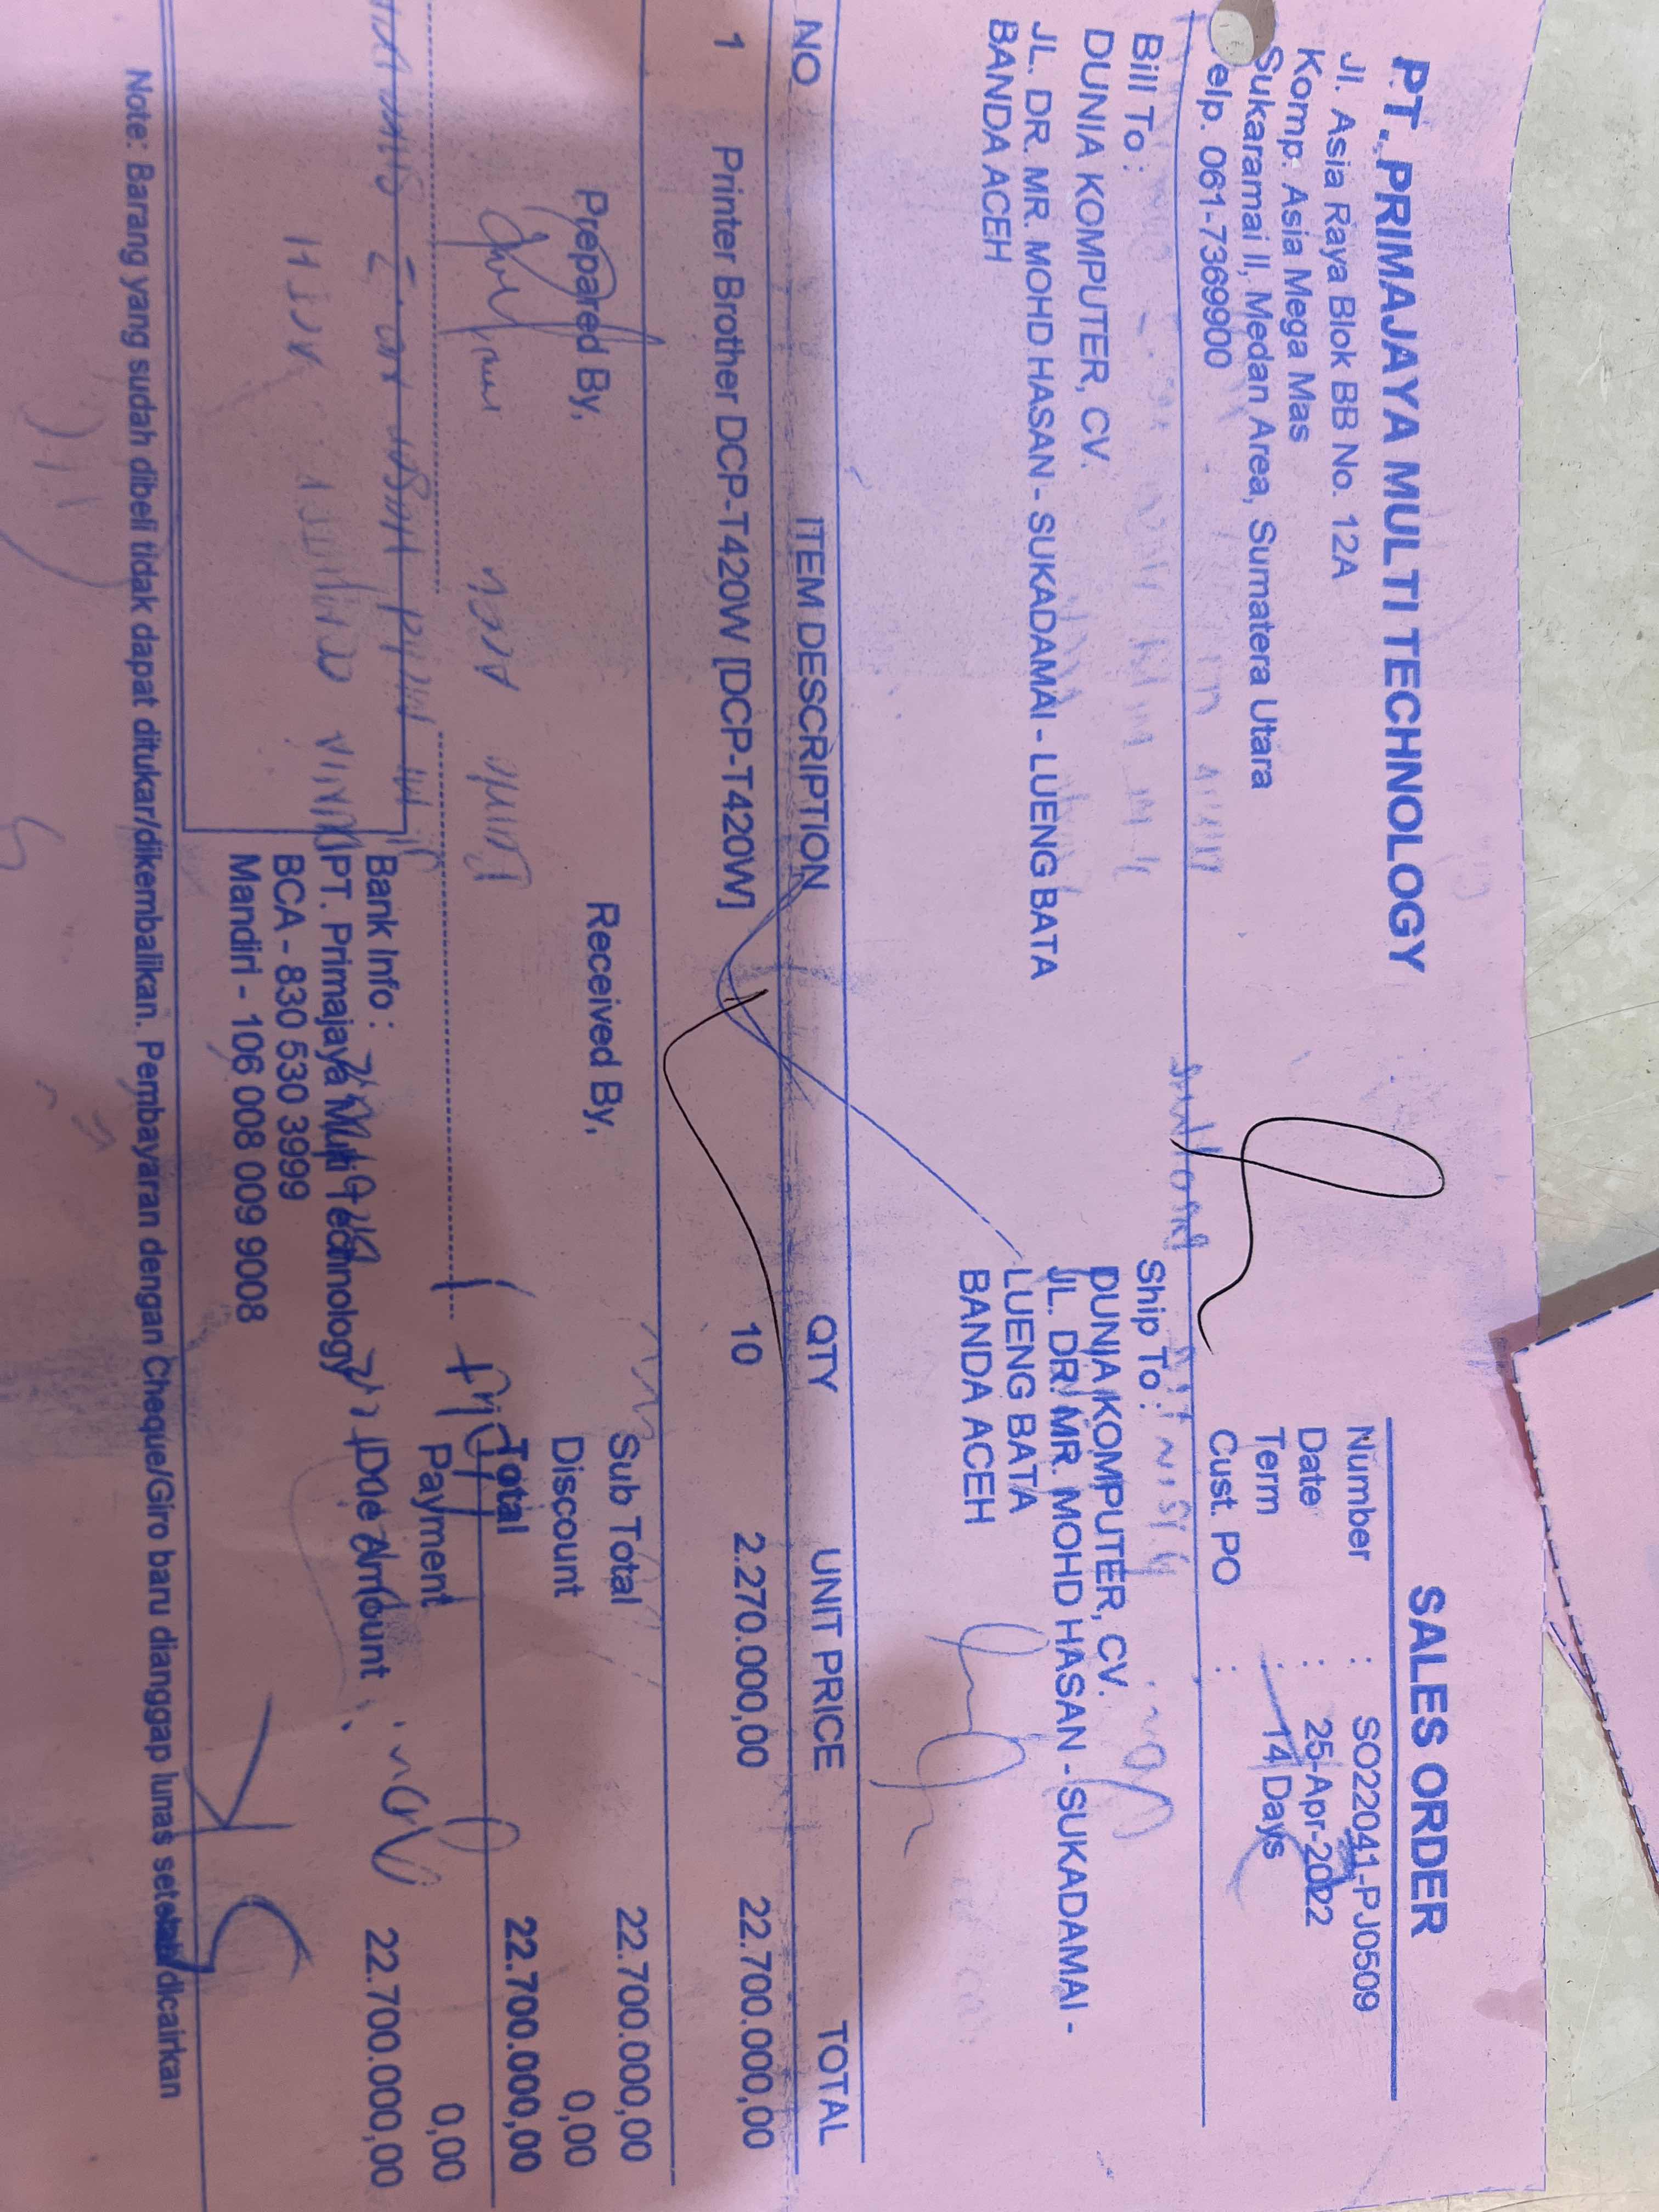 PT. PRIMAJAYA MULTI TECHNOLOGY
Jl. Asia Raya Blok BB No. 12A
Komp. Asia Mega Mas
Sukaramai II, Medan Area, Sumatera Utara
elp. 061-7369900
SALES ORDER
Number : SO22041-PJ0509
Date : 25-Apr-2022
Term : 14 Days
Cust. PO :
Bill To :
DUNIA KOMPUTER, CV.
JL. DR. MR. MOHD HASAN - SUKADAMAI - LUENG BATA
BANDA ACEH
Ship To :
DUNIA KOMPUTER, CV.
JL. DR. MR. MOHD HASAN - SUKADAMAI -
LUENG BATA
BANDA ACEH
NO ITEM DESCRIPTION QTY UNIT PRICE TOTAL
1 Printer Brother DCP-T420W [DCP-T420W] 10 2.270.000,00 22.700.000,00
Prepared By, Received By,
Sub Total 22.700.000,00
Discount 0,00
Total 22.700.000,00
Payment 0,00
Due Amount 22.700.000,00
Bank Info :
PT. Primajaya Multi Technology
BCA - 830 530 3999
Mandiri - 106 008 009 9008
Note: Barang yang sudah dibeli tidak dapat ditukar/dikembalikan. Pembayaran dengan Cheque/Giro baru dianggap lunas setelah dicairkan